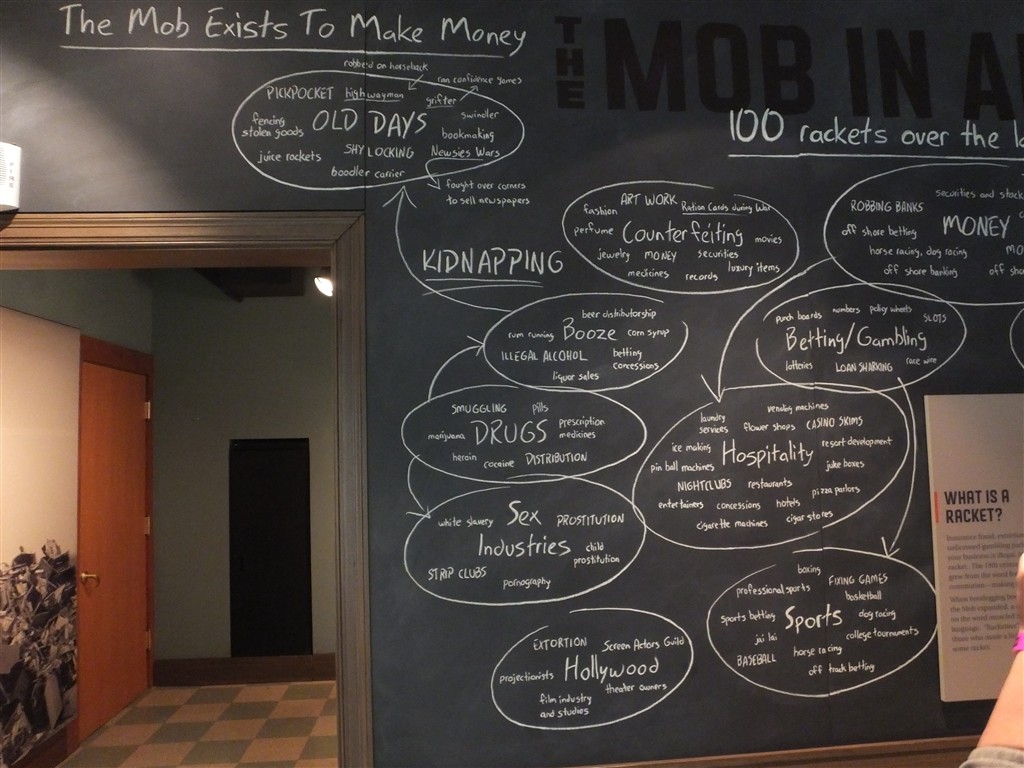 The Mob Exists To Make Money
THE MOB IN A
100 rackets over the la
robbed on horseback
ran confidence games
PICKPOCKET highwayman
grifter
fencing
stolen goods
OLD DAYS
swindler
bookmaking
juice rackets
SHYLOCKING
Newsies Wars
boodler carrier
fought over corners
to sell newspapers
KIDNAPPING
ART WORK
fashion
Ration Cards during War
perfume
Counterfeiting
movies
jewelry MONEY securities
medicines records luxury items
securities and stock
ROBBING BANKS
off shore betting
MONEY
horse racing, dog racing
MO
off shore banking
off sho
beer distributorship
rum running Booze corn syrup
ILLEGAL ALCOHOL
betting
concessions
liquor sales
punch boards numbers policy wheels SLOTS
Betting/Gambling
lotteries LOAN SHARKING race wire
SMUGGLING pills
marijuana DRUGS
prescription
medicines
heroin cocaine DISTRIBUTION
laundry
services
vending machines
flower shops CASINO SKIMS
ice making Hospitality resort development
pin ball machines
juke boxes
NIGHTCLUBS restaurants
pizza parlors
entertainers concessions hotels
cigarette machines cigar stores
white slavery Sex PROSTITUTION
Industries
child
prostitution
STRIP CLUBS
pornography
boxing
professional sports FIXING GAMES
basketball
sports betting Sports dog racing
jai lai
college tournaments
BASEBALL horse racing
off track betting
EXTORTION Screen Actors Guild
projectionists Hollywood
theater owners
film industry
and studios
WHAT IS A
RACKET?